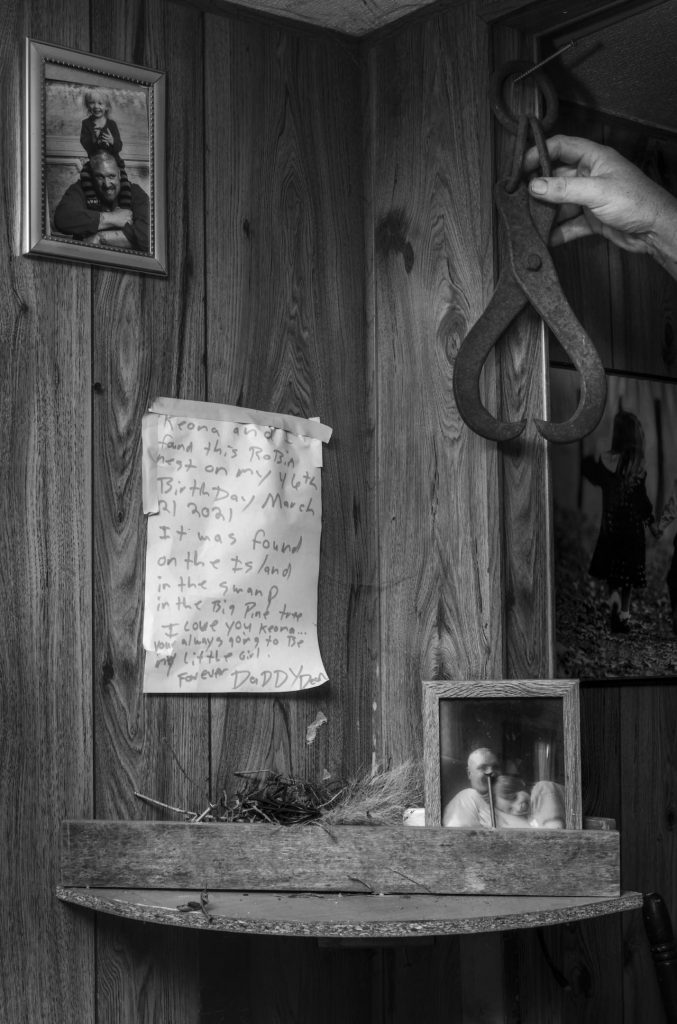 Keona and I
found this RoBin
nest on my 46th
BirthDay March
21 2021
It was found
on the Island
in the swamp
in the Big Pine tree
I Love you Keona...
your always going to Be
my Little Girl.
Forever DaDDY Dean